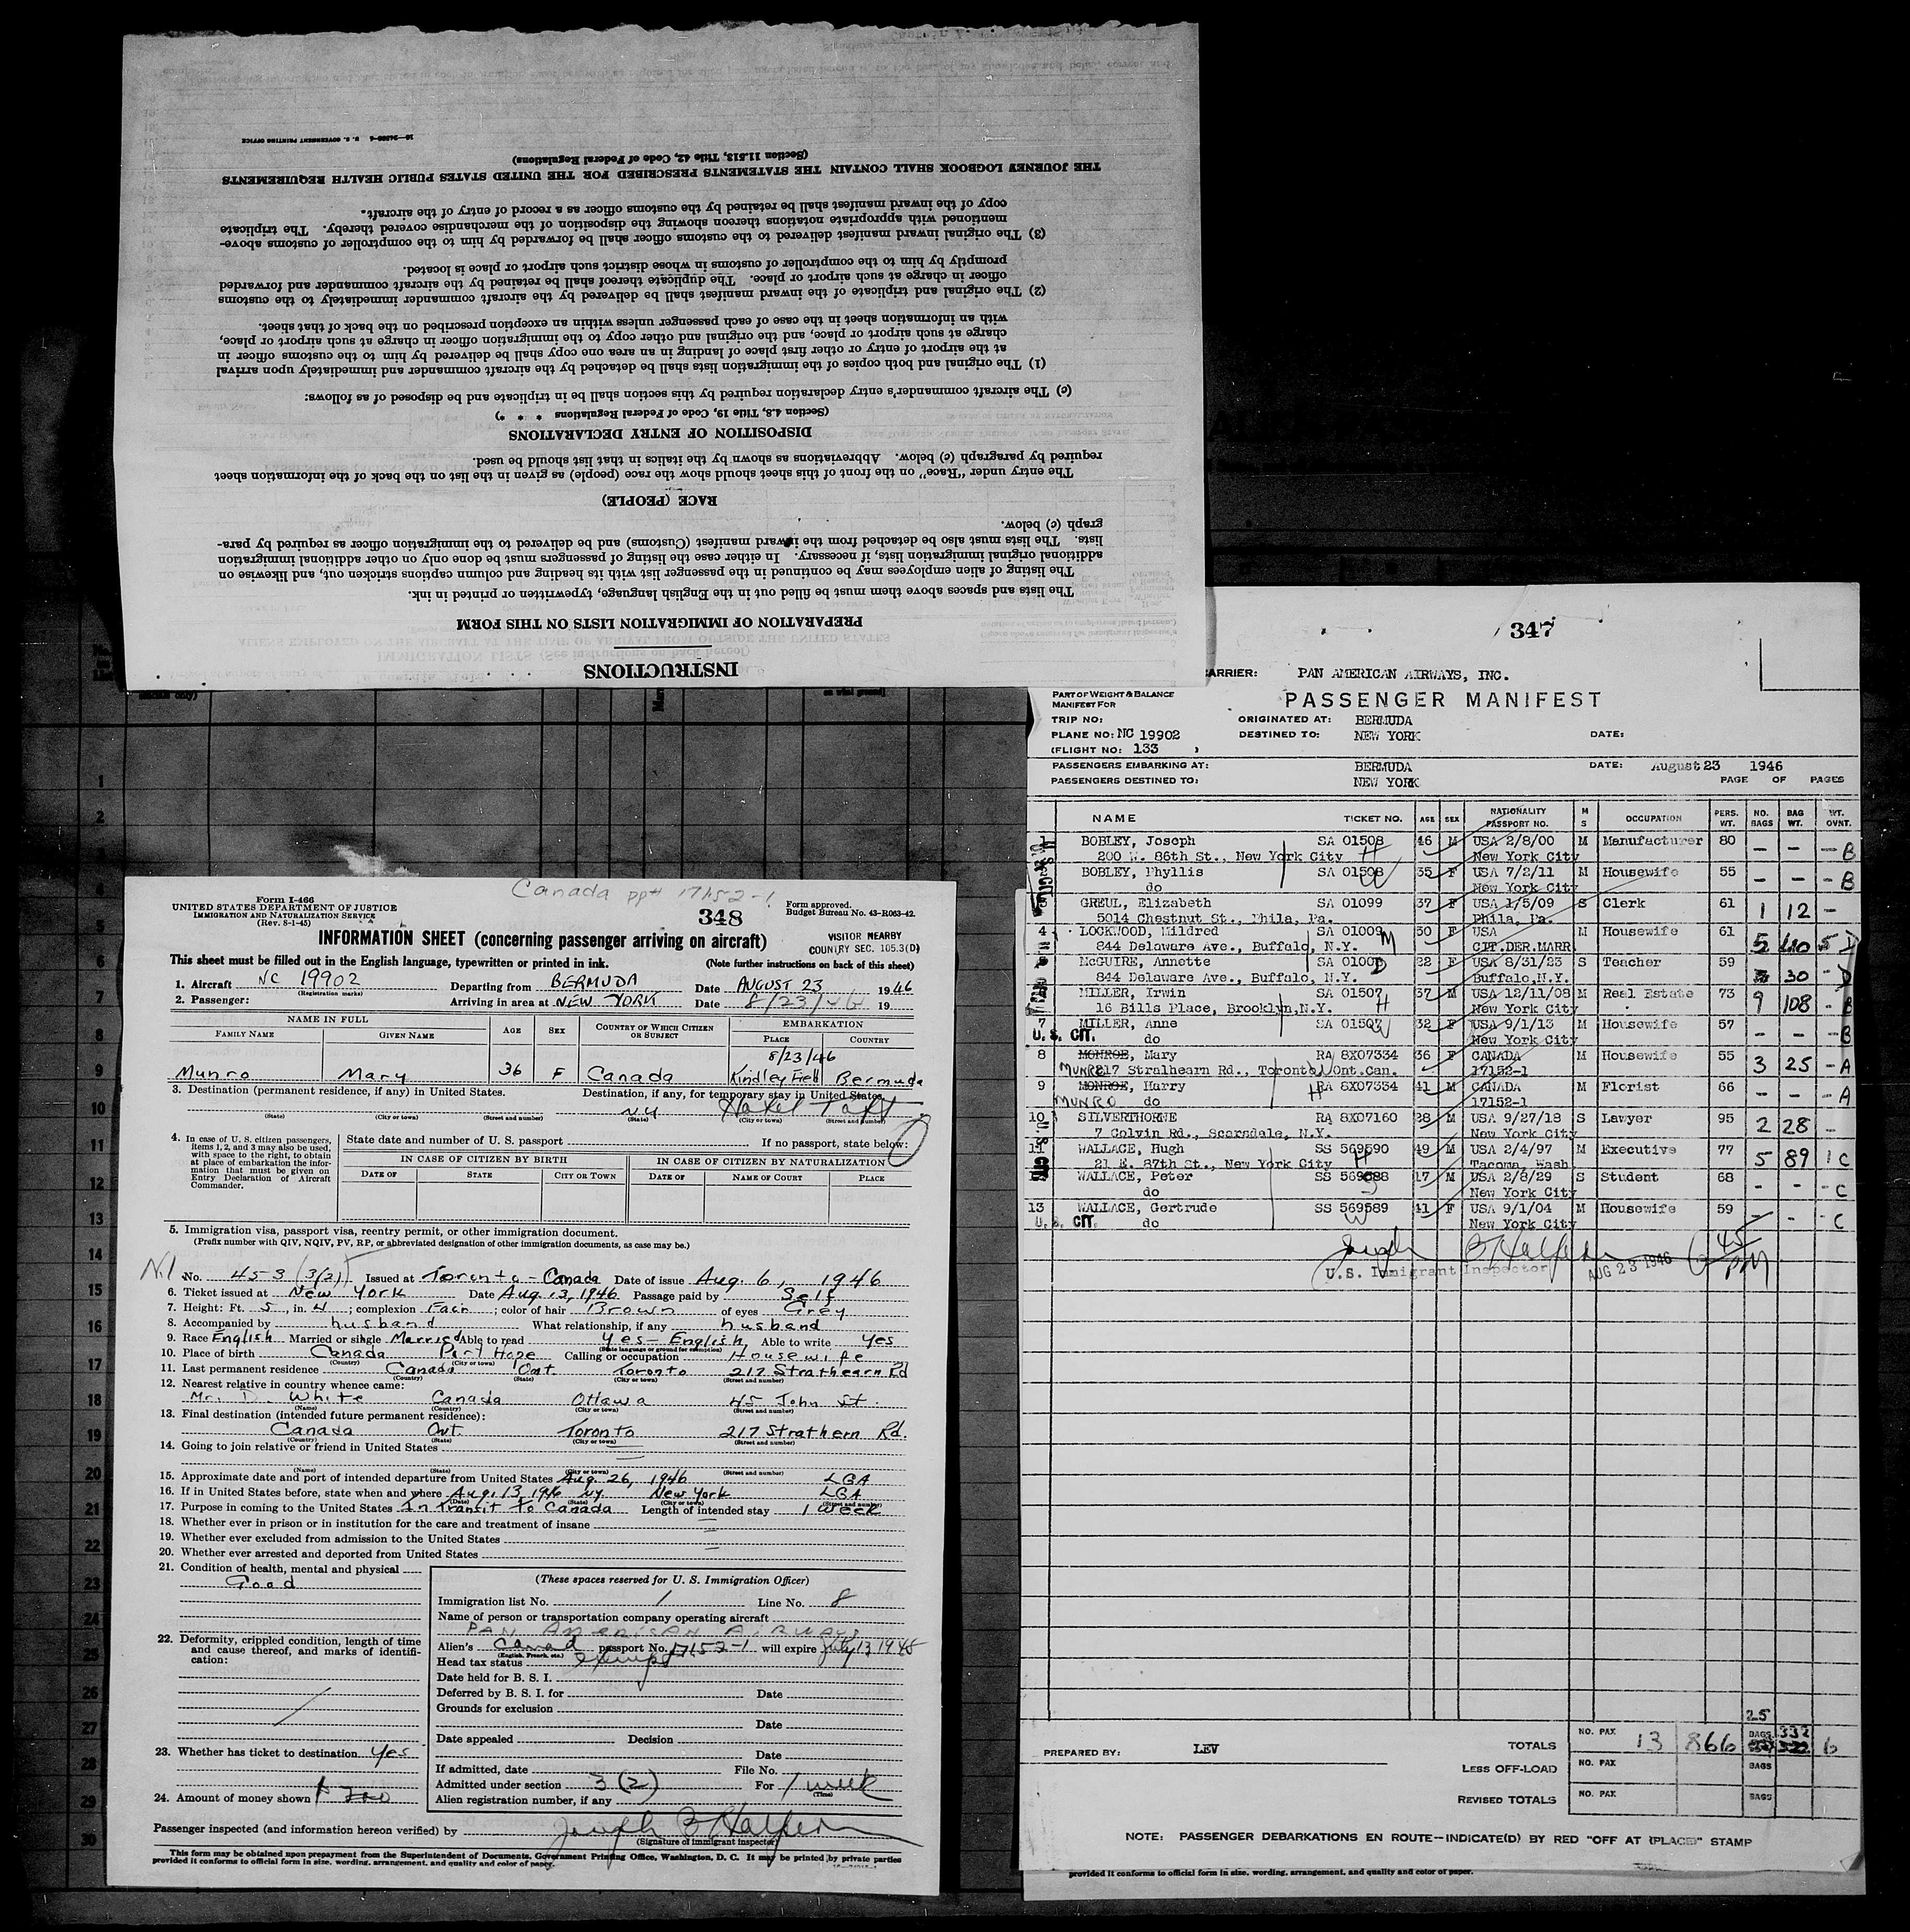 INSTRUCTIONS
PREPARATION OF IMMIGRATION LISTS ON THIS FORM
The lists and spaces above them must be filled out in the English language, typewritten or printed in ink.
The listing of alien employees may be continued in the passenger list with its heading and column captions stricken out, and likewise on
additional original immigration lists, if necessary. In either case the listing of passengers must be done only on other additional immigration
lists. The lists must also be detached from the inward manifest (Customs) and be delivered to the immigration officer as required by para-
graph (c) below.
RACE (PEOPLE)
The entry under "Race" on the front of this sheet should show the race (people) as given in the list on the back of the information sheet
required by paragraph (c) below. Abbreviations as shown by the italics in that list should be used.
DISPOSITION OF ENTRY DECLARATIONS
(Section 4.8, Title 19, Code of Federal Regulations * * *)
(c) The aircraft commander's entry declaration required by this section shall be in triplicate and be disposed of as follows:
(1) The original and both copies of the immigration lists shall be detached by the aircraft commander and immediately upon arrival
at the airport of entry or other first place of landing in an area one copy shall be delivered by him to the customs officer in
charge at such airport or place, and the original and other copy to the immigration officer in charge at such airport or place,
with an information sheet in the case of each passenger unless within an exception prescribed on the back of that sheet.
(2) The original and triplicate of the inward manifest shall be delivered by the aircraft commander immediately to the customs
officer in charge at such airport or place. The duplicate thereof shall be retained by the aircraft commander and forwarded
promptly by him to the comptroller of customs in whose district such airport or place is located.
(3) The original inward manifest delivered to the customs officer shall be forwarded by him to the comptroller of customs above-
mentioned with appropriate notations thereon showing the disposition of the merchandise covered thereby. The triplicate
copy of the inward manifest shall be retained by the customs officer as a record of entry of the aircraft.
THE JOURNEY LOGBOOK SHALL CONTAIN THE STATEMENTS PRESCRIBED FOR THE UNITED STATES PUBLIC HEALTH REQUIREMENTS
(Section 11.513, Title 42, Code of Federal Regulations)
U. S. GOVERNMENT PRINTING OFFICE
Canada pp# 17152-1
Form I-466
UNITED STATES DEPARTMENT OF JUSTICE
IMMIGRATION AND NATURALIZATION SERVICE
(Rev. 8-1-45)
348
Form approved.
Budget Bureau No. 43-R063-42.
INFORMATION SHEET (concerning passenger arriving on aircraft)
VISITOR NEARBY
COUNTRY SEC. 105.3(D)
This sheet must be filled out in the English language, typewritten or printed in ink. (Note further instructions on back of this sheet)
1. Aircraft NC 19902 Departing from BERMUDA Date AUGUST 23 1946
(Registration marks)
2. Passenger: Arriving in area at NEW YORK Date 8/23/46 19
NAME IN FULL AGE SEX COUNTRY OF WHICH CITIZEN OR SUBJECT EMBARKATION
FAMILY NAME GIVEN NAME PLACE COUNTRY
8/23/46
Munro Mary 36 F Canada Kindley Field Bermuda
3. Destination (permanent residence, if any) in United States. Destination, if any, for temporary stay in United States.
NY Hotel Taft
(State) (City or town) (Street and number) (State) (City or town) (Street and number)
4. In case of U. S. citizen passengers, items 1, 2, and 3 may also be used, with space to the right, to obtain at place of embarkation the information that must be given on Entry Declaration of Aircraft Commander.
State date and number of U. S. passport If no passport, state below:
IN CASE OF CITIZEN BY BIRTH IN CASE OF CITIZEN BY NATURALIZATION
DATE OF STATE CITY OR TOWN DATE OF NAME OF COURT PLACE
5. Immigration visa, passport visa, reentry permit, or other immigration document.
(Prefix number with QIV, NQIV, PV, RP, or abbreviated designation of other immigration documents, as case may be.)
No. 453 (3/2) Issued at Toronto - Canada Date of issue Aug. 6, 1946
6. Ticket issued at New York Date Aug. 13, 1946 Passage paid by Self
7. Height: Ft. 5, in. 4; complexion Fair; color of hair Brown of eyes Grey
8. Accompanied by husband What relationship, if any husband
9. Race English Married or single Married Able to read Yes - English Able to write Yes
(State language or ground for exemption)
10. Place of birth Canada Port Hope Calling or occupation Housewife
(Country) (City or town)
11. Last permanent residence Canada Ont. Toronto 217 Strathearn Rd
(Country) (State) (City or town) (Street and number)
12. Nearest relative in country whence came:
Mr. D. White Canada Ottawa 45 John St.
(Name) (Country) (City or town) (Street and number)
13. Final destination (intended future permanent residence):
Canada Ont. Toronto 217 Strathern Rd.
(Country) (State) (City or town) (Street and number)
14. Going to join relative or friend in United States
(Name) (State) (City or town) (Street and number)
15. Approximate date and port of intended departure from United States Aug. 26, 1946 LGA
16. If in United States before, state when and where Aug. 13, 1946 NY. New York LGA
(Date) (State) (City or town) (Street and number)
17. Purpose in coming to the United States In Transit to Canada Length of intended stay 1 week
18. Whether ever in prison or in institution for the care and treatment of insane
19. Whether ever excluded from admission to the United States
20. Whether ever arrested and deported from United States
21. Condition of health, mental and physical
Good
22. Deformity, crippled condition, length of time and cause thereof, and marks of identification:
23. Whether has ticket to destination Yes
24. Amount of money shown
(These spaces reserved for U. S. Immigration Officer)
Immigration list No. 1 Line No. 8
Name of person or transportation company operating aircraft
PAN AMERICAN AIRWAYS
Alien's Canad passport No. 17152-1 will expire July 13 1948
(English, French, etc.)
Head tax status exempt
Date held for B. S. I.
Deferred by B. S. I. for Date
Grounds for exclusion
Date
Date appealed Decision
Date
If admitted, date File No.
Admitted under section 3(2) For 1 week
(Time)
Alien registration number, if any
Passenger inspected (and information hereon verified) by Joseph B Halpern
(Signature of immigrant inspector)
This form may be obtained upon prepayment from the Superintendent of Documents, Government Printing Office, Washington, D. C. It may be printed by private parties
provided it conforms to official form in size, wording, arrangement, and quality and color of paper.
347
ARRIER: PAN AMERICAN AIRWAYS, INC.
PART OF WEIGHT & BALANCE
MANIFEST FOR
PASSENGER MANIFEST
TRIP NO: ORIGINATED AT: BERMUDA
PLANE NO: NC 19902 DESTINED TO: NEW YORK DATE:
(FLIGHT NO: 133 )
PASSENGERS EMBARKING AT: BERMUDA DATE: August 23 1946
PASSENGERS DESTINED TO: NEW YORK PAGE OF PAGES
NAME TICKET NO. AGE SEX NATIONALITY PASSPORT NO. M S OCCUPATION PERS. WT. NO. BAGS BAG WT. WT. OVNT.
1 BOBLEY, Joseph SA 01508 46 M USA 2/8/00 M Manufacturer 80 - - - B
200 W. 86th St., New York City H New York City
BOBLEY, Phyllis SA 01508 35 F USA 7/2/11 M Housewife 55 - - - B
do W New York City
GREUL, Elizabeth SA 01099 37 F USA 1/5/09 S Clerk 61 1 12 -
5014 Chestnut St., Phila, Pa. Phila, Pa.
4 LOCKWOOD, Mildred SA 01009 50 F USA M Housewife 61 5 40 5 D
844 Delaware Ave., Buffalo, N.Y. M CIT.DER.MARR
McGUIRE, Annette SA 01008 22 F USA 8/31/23 S Teacher 59 30 - D
844 Delaware Ave., Buffalo, N.Y. D Buffalo,N.Y.
MILLER, Irwin SA 01507 37 M USA 12/11/08 M Real Estate 73 9 108 - B
16 Bills Place, Brooklyn,N.Y. H New York City
7 MILLER, Anne SA 01507 32 F USA 9/1/13 M Housewife 57 - - - B
U. S. CIT. do W New York City
8 MONROE, Mary RA 8X07334 36 F CANADA M Housewife 55 3 25 - A
MUNRO 217 Stralhearn Rd., Toronto, Ont.Can. W 17152-1
9 MONROE, Harry RA 8X07334 41 M CANADA M Florist 66 - - - A
MUNRO do H 17152-1
10 SILVERTHORNE RA 8X07160 28 M USA 9/27/18 S Lawyer 95 2 28 -
7 Colvin Rd., Scarsdale, N.Y. New York City
11 WALLACE, Hugh SS 569590 49 M USA 2/4/97 M Executive 77 5 89 1 C
21 E. 87th St., New York City H Tacoma, Wash
WALLACE, Peter SS 569588 17 M USA 2/8/29 S Student 68 - - - C
do S New York City
13 WALLACE, Gertrude SS 569589 41 F USA 9/1/04 M Housewife 59 - - - C
U. S. CIT. do W New York City
Joseph B Halpern
U.S. Immigrant Inspector AUG 23 1946 6 45 PM
25
PREPARED BY: LEV TOTALS NO. PAX 13 866 BAGS 332 6
LESS OFF-LOAD NO. PAX BAGS
REVISED TOTALS NO. PAX BAGS
NOTE: PASSENGER DEBARKATIONS EN ROUTE--INDICATE(D) BY RED "OFF AT (PLACE)" STAMP
provided it conforms to official form in size, wording, arrangement, and quality and color of paper.
1
2
4
5
6
7
8
9
10
11
12
13
14
15
16
17
18
19
20
21
22
23
24
25
26
27
28
29
30